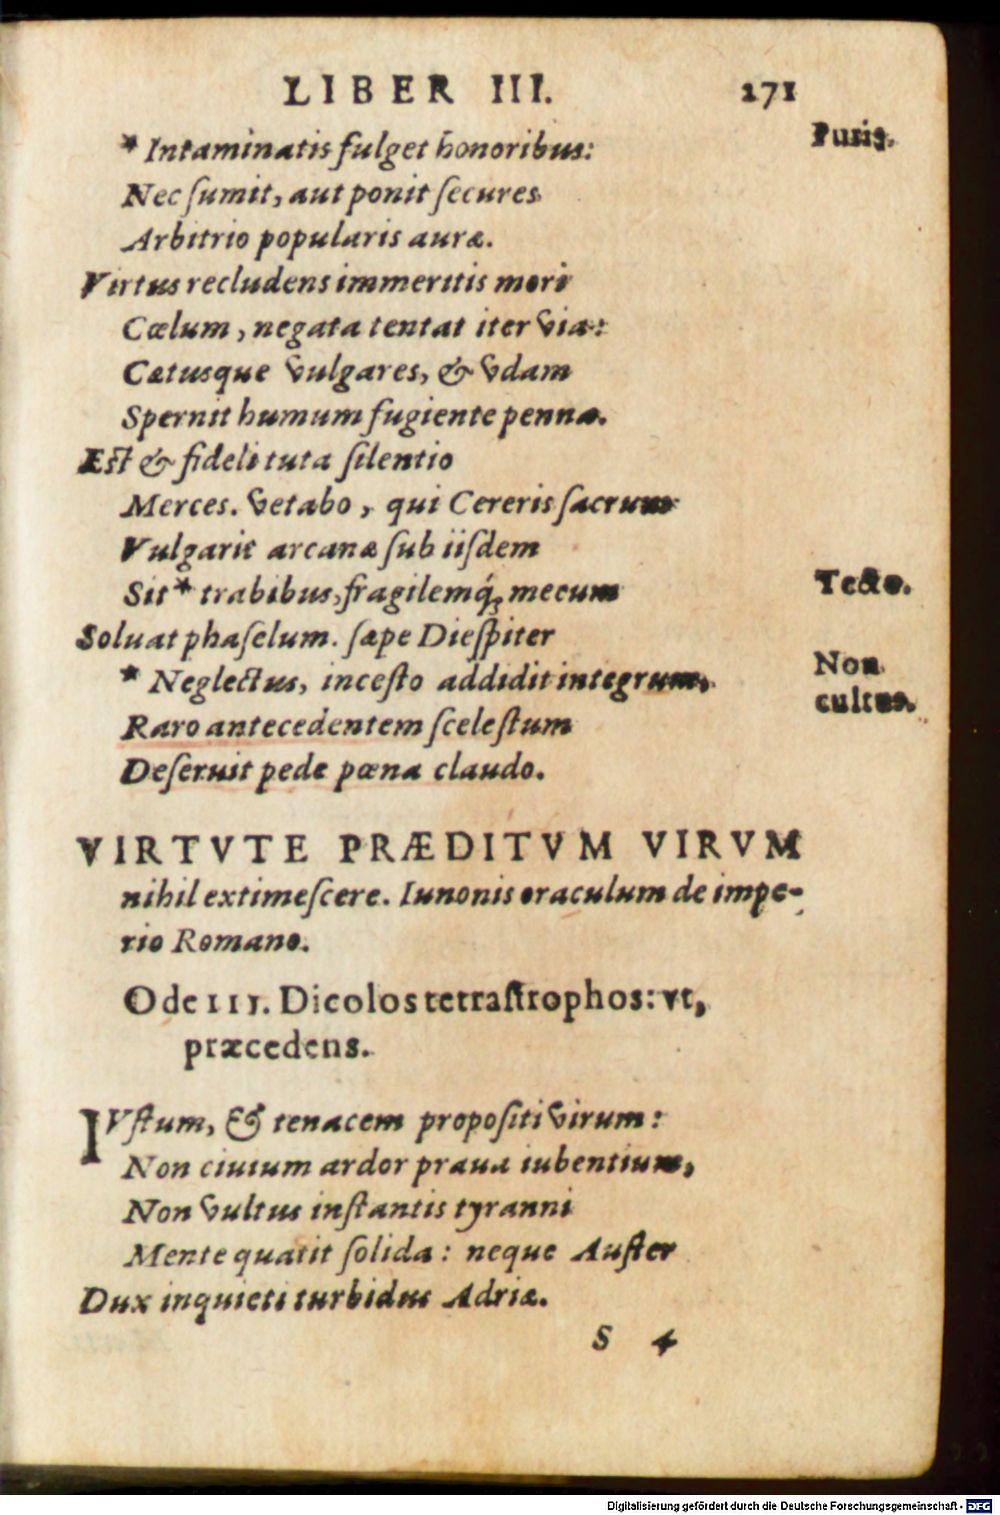 LIBER III. 271
* Intaminatis fulget honoribus: Puris.
Nec ſumit, aut ponit ſecures
Arbitrio popularis auræ.
Virtus recludens immeritis mori
Cœlum, negata tentat iter via:
Cætusque vulgares, & vdam
Spernit humum fugiente penna.
Est & fideli tuta ſilentio
Merces. vetabo, qui Cereris ſacrum
Vulgarit arcanæ ſub iiſdem
Sit * trabibus, fragilemq́; mecum Tecto.
Soluat phaſelum. ſæpe Dieſpiter
* Neglectus, inceſto addidit integrum, Non cultus.
Raro antecedentem ſceleſtum
Deſeruit pede pœna claudo.
VIRTVTE PRÆDITVM VIRVM
nihil extimeſcere. Iunonis oraculum de impe-
rio Romano.
Ode III. Dicolos tetraſtrophos: vt,
præcedens.
IVſtum, & tenacem propoſiti virum:
Non ciuium ardor praua iubentium,
Non vultus inſtantis tyranni
Mente quatit ſolida: neque Auſter
Dux inquieti turbidus Adriæ.
S 4
Digitalisierung gefördert durch die Deutsche Forschungsgemeinschaft - DFG